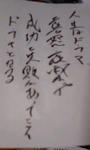 人生はドラマ
喜怒哀感や
成功と失敗があってこそ
ドラマとなる